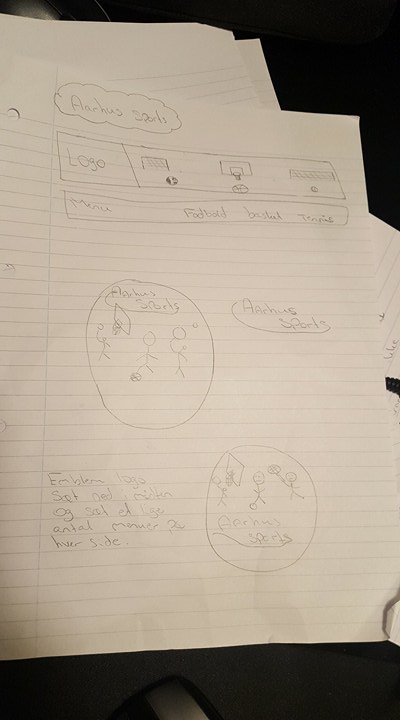 Aarhus Sports
Logo
Menu Fodbold basket Tennis
Aarhus
Sports
Aarhus
Sports
Emblem logo
Sæt ned i midten
og sæt et lige
antal menuer på
hver side.
Aarhus
Sports